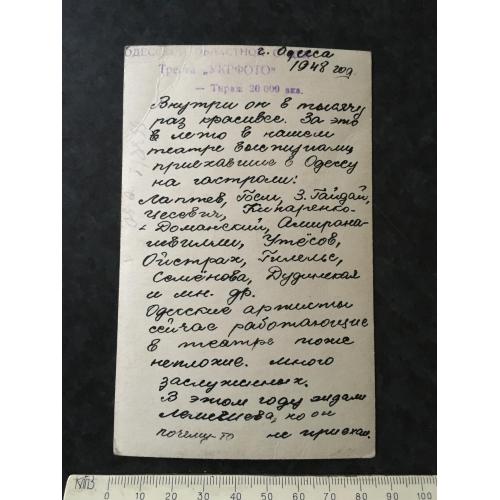 ОДЕССКО ОБЛАСТНОГО
г. Одесса
Треста „УКРФОТО"
1948 год
— Тираж 20 000 экз.
Внутри он в тысячу
раз красивее. За это
в лето в нашем
театре выступали
приехавшие в Одессу
на гастроли:
Лаптев, Гоги, З. Гайдай,
Чесевич, Кипаренко-
-Доманский, Амирана-
швилли, Утёсов,
Ойстрах, Гилельс,
Семёнова, Дудинская
и мн. др.
Одесские артисты
сейчас работающие
в театре тоже
неплохие. Много
заслуженных.
В этом году ждали
Лемешева, но он
почему-то не приехал.
0 10 20 30 40 50 60 70 80 90 100